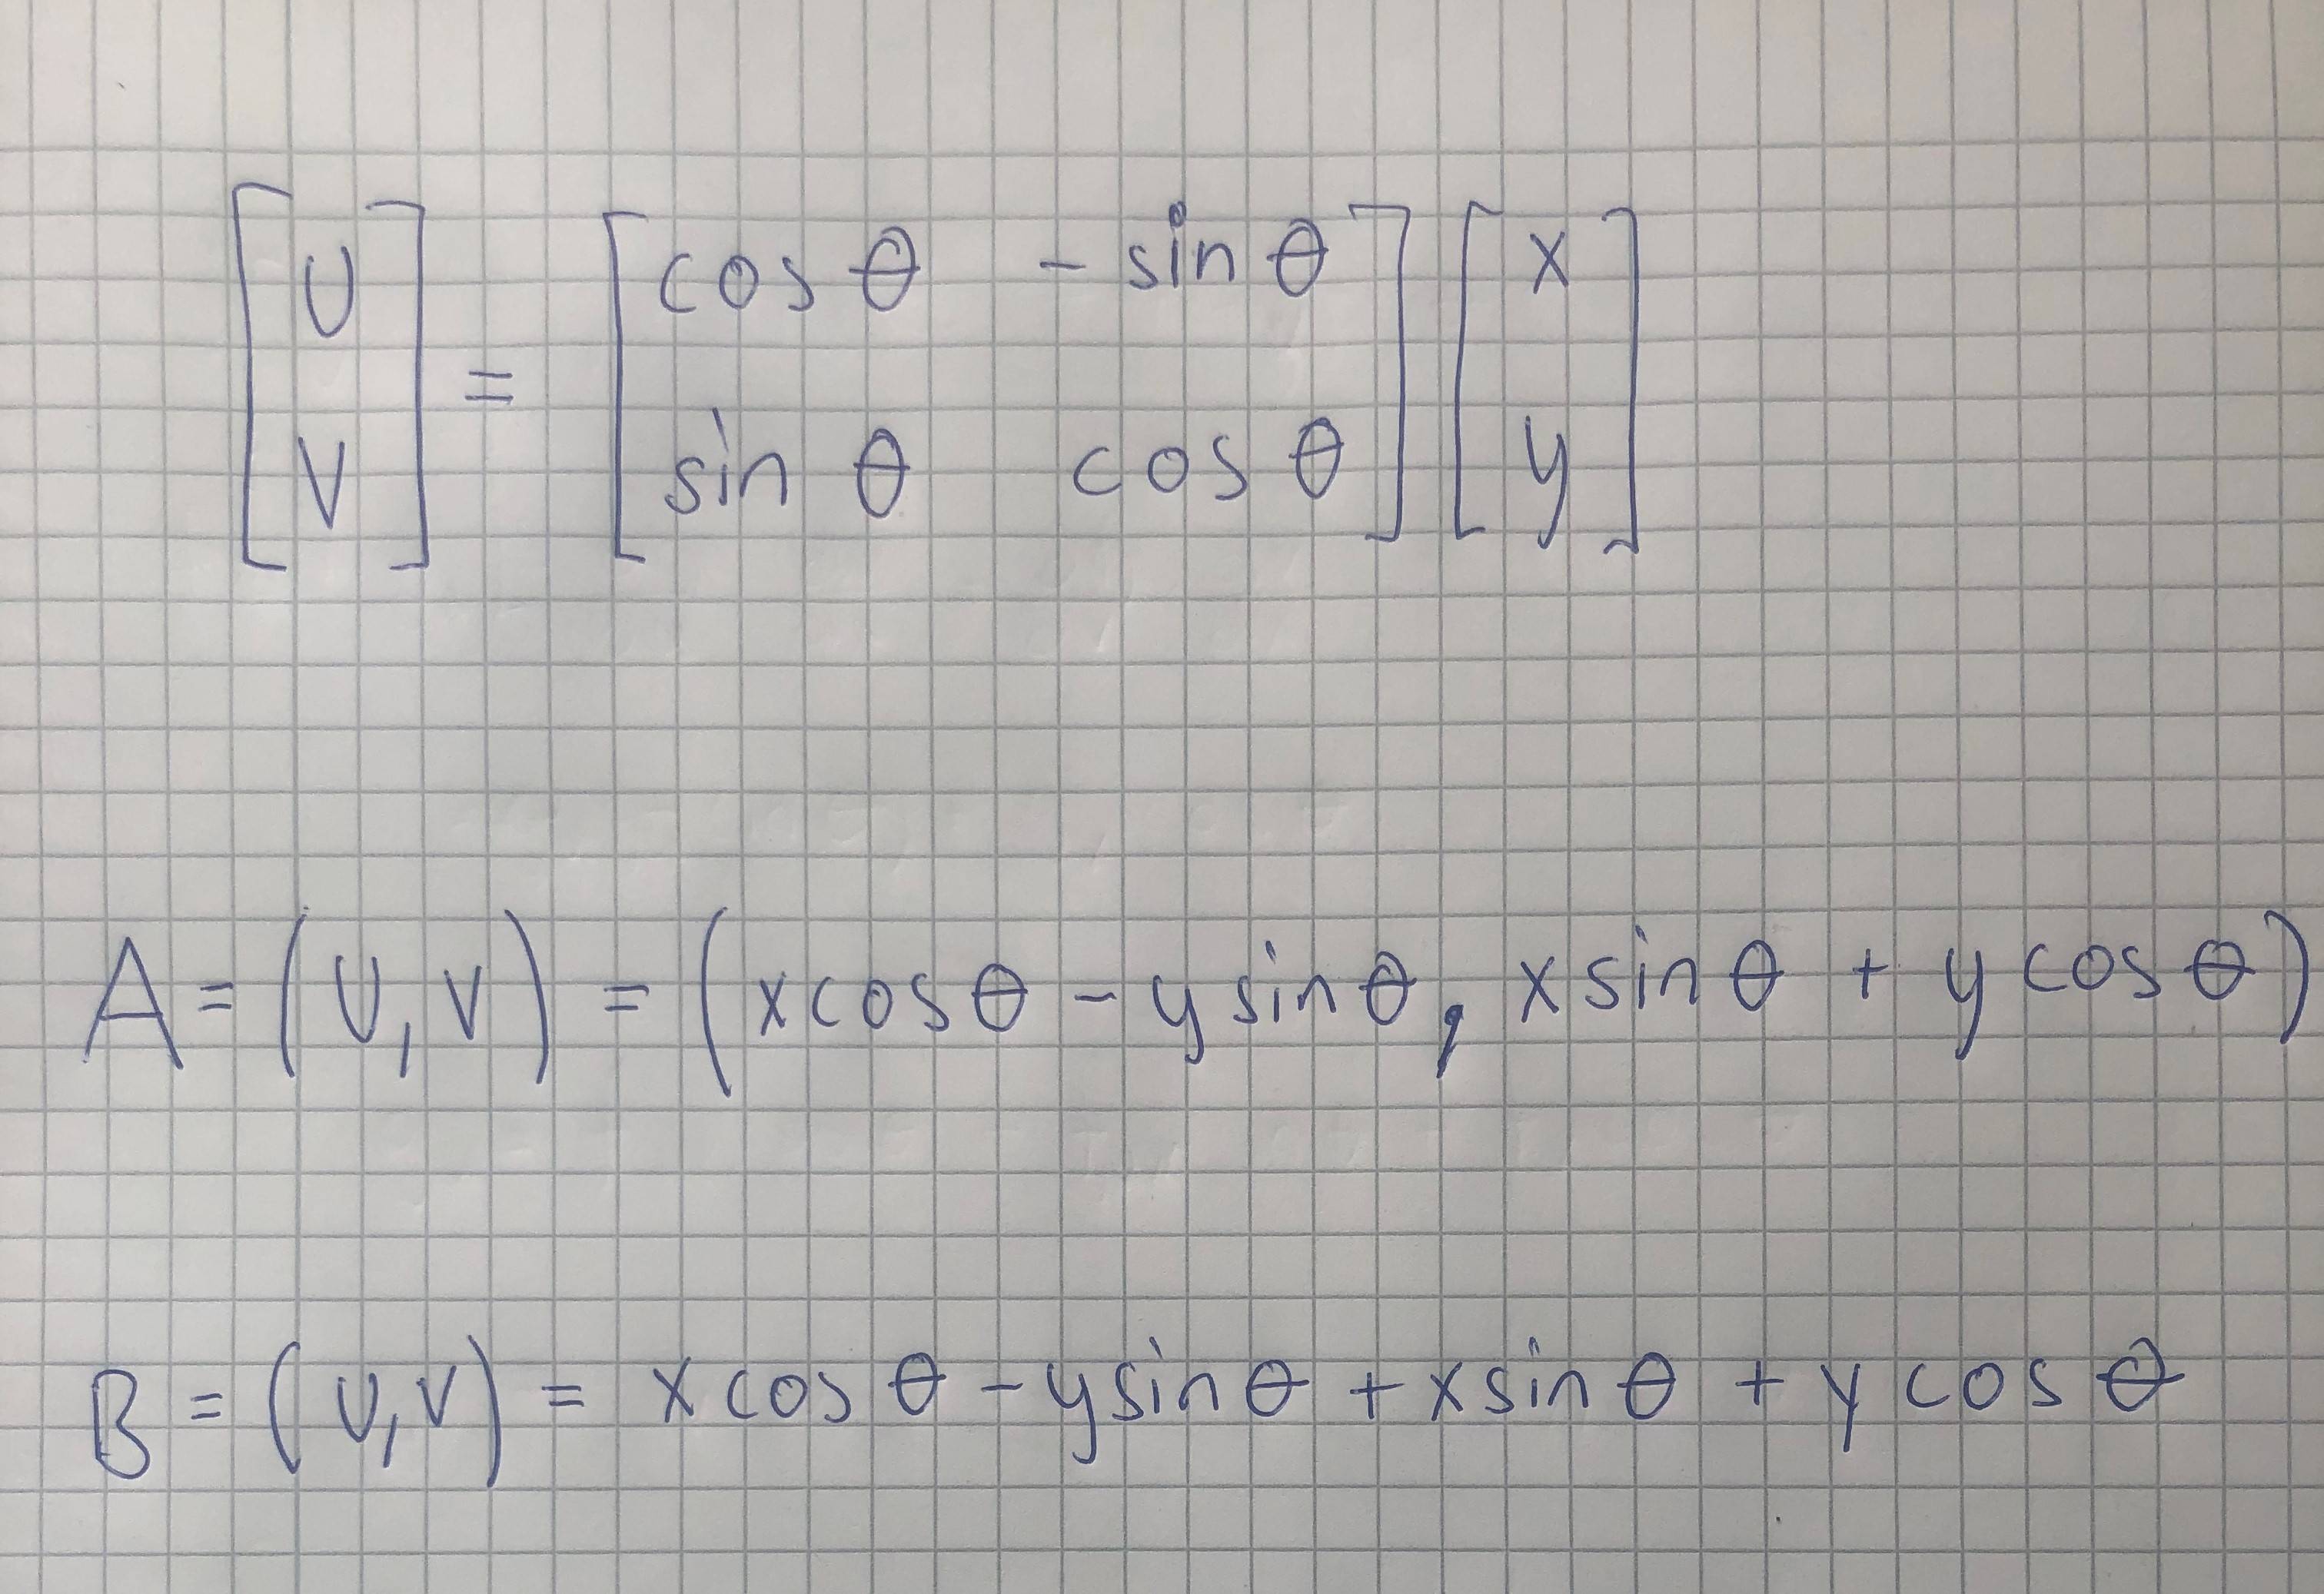 [U V] = [cos θ - sin θ sin θ cos θ] [x y]
A = (U, V) = (x cos θ - y sin θ, x sin θ + y cos θ)
B = (U, V) = x cos θ - y sin θ + x sin θ + y cos θ